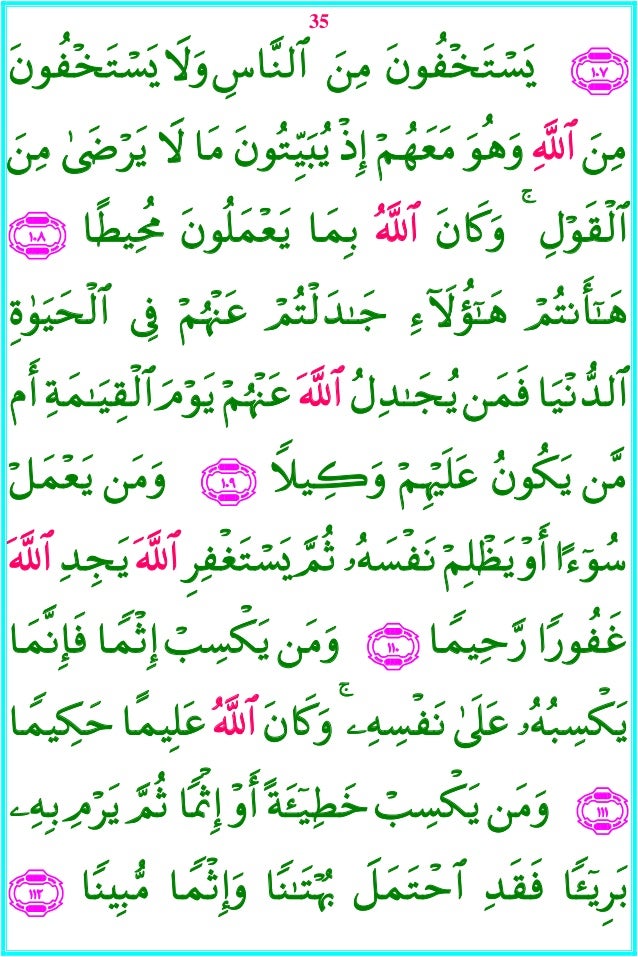 35
١٠٧ يَسْتَخْفُونَ مِنَ ٱلنَّاسِ وَلَا يَسْتَخْفُونَ
مِنَ ٱللَّهِ وَهُوَ مَعَهُمْ إِذْ يُبَيِّتُونَ مَا لَا يَرْضَىٰ مِنَ
ٱلْقَوْلِ ۚ وَكَانَ ٱللَّهُ بِمَا يَعْمَلُونَ مُحِيطًا ١٠٨
هَـٰٓأَنتُمْ هَـٰٓؤُلَآءِ جَـٰدَلْتُمْ عَنْهُمْ فِى ٱلْحَيَوٰةِ
ٱلدُّنْيَا فَمَن يُجَـٰدِلُ ٱللَّهَ عَنْهُمْ يَوْمَ ٱلْقِيَـٰمَةِ أَم
مَّن يَكُونُ عَلَيْهِمْ وَكِيلًا ١٠٩ وَمَن يَعْمَلْ
سُوٓءًا أَوْ يَظْلِمْ نَفْسَهُۥ ثُمَّ يَسْتَغْفِرِ ٱللَّهَ يَجِدِ ٱللَّهَ
غَفُورًا رَّحِيمًا ١١٠ وَمَن يَكْسِبْ إِثْمًا فَإِنَّمَا
يَكْسِبُهُۥ عَلَىٰ نَفْسِهِۦ ۚ وَكَانَ ٱللَّهُ عَلِيمًا حَكِيمًا
١١١ وَمَن يَكْسِبْ خَطِيٓـَٔةً أَوْ إِثْمًا ثُمَّ يَرْمِ بِهِۦ
بَرِيٓـًٔا فَقَدِ ٱحْتَمَلَ بُهْتَـٰنًا وَإِثْمًا مُّبِينًا ١١٢